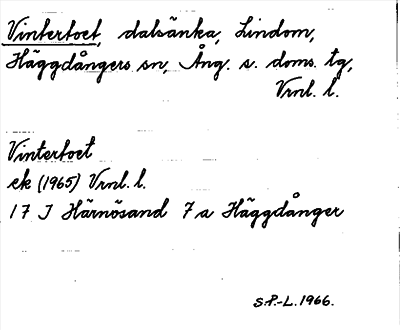 Vintertoet, dalsänka, Lindom,
Häggdångers sn, Ång. s. doms. tg,
Vrnl. l.
Vintertoet
ek (1965) Vrnl. l.
17 J Härnösand 7 a Häggdånger
S.P.-L. 1966.